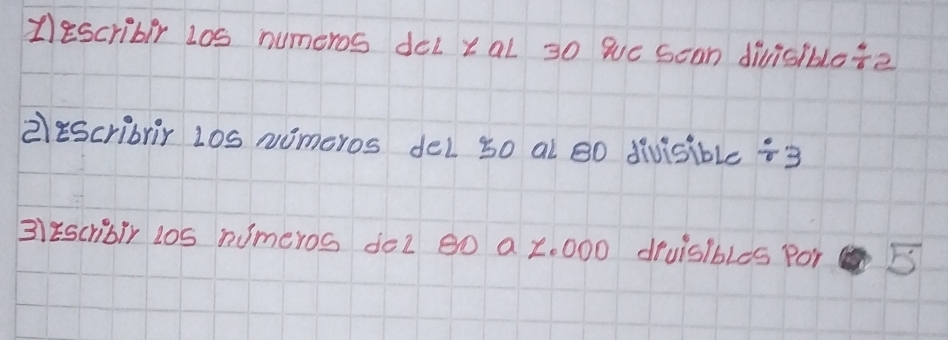 1) Escribir los numeros del 1 al 30 que sean divisible ÷ 2
2) Escribrir los números del 30 al 80 divisible ÷ 3
3) Escribir los números del 80 a 1.000 divisibles por 5